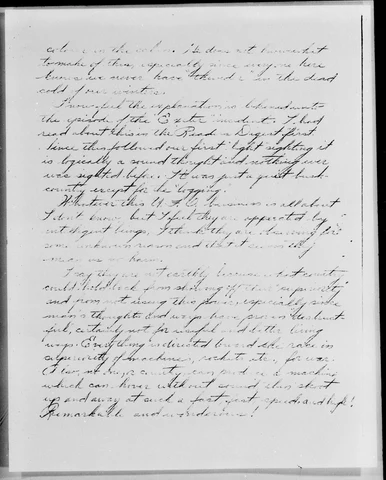 in the
to make of this, especially since everyone here
knows we never have "thunder" in the dead
cold of our winters.
I now feel the explanation is
the episode of the "Exeter" incident. I had
read about this in the Reader's Digest first.
Since this followed our first light sighting it
is logically a sound thought and nothing ever
was sighted before. It was just a quiet bush
county except for the logging.
Whatever this U.F.O. business is all about
I don't know, but I feel they are operated by
intelligent beings, I think they are observing for
some unknown reason and that
mean us no harm.
I say they are not earthly because what country
could hold back from showing off their superiority
and from not using this power, especially since
man's thoughts and ways have proven
certainly not for useful and better living
ways. Everything is directed toward the race in
superiority of machines, rockets, etc., for war.
country can build a machine
which can hover without sound then shoot
up and away at such a fast speed and high!
Remarkable and wonderous!